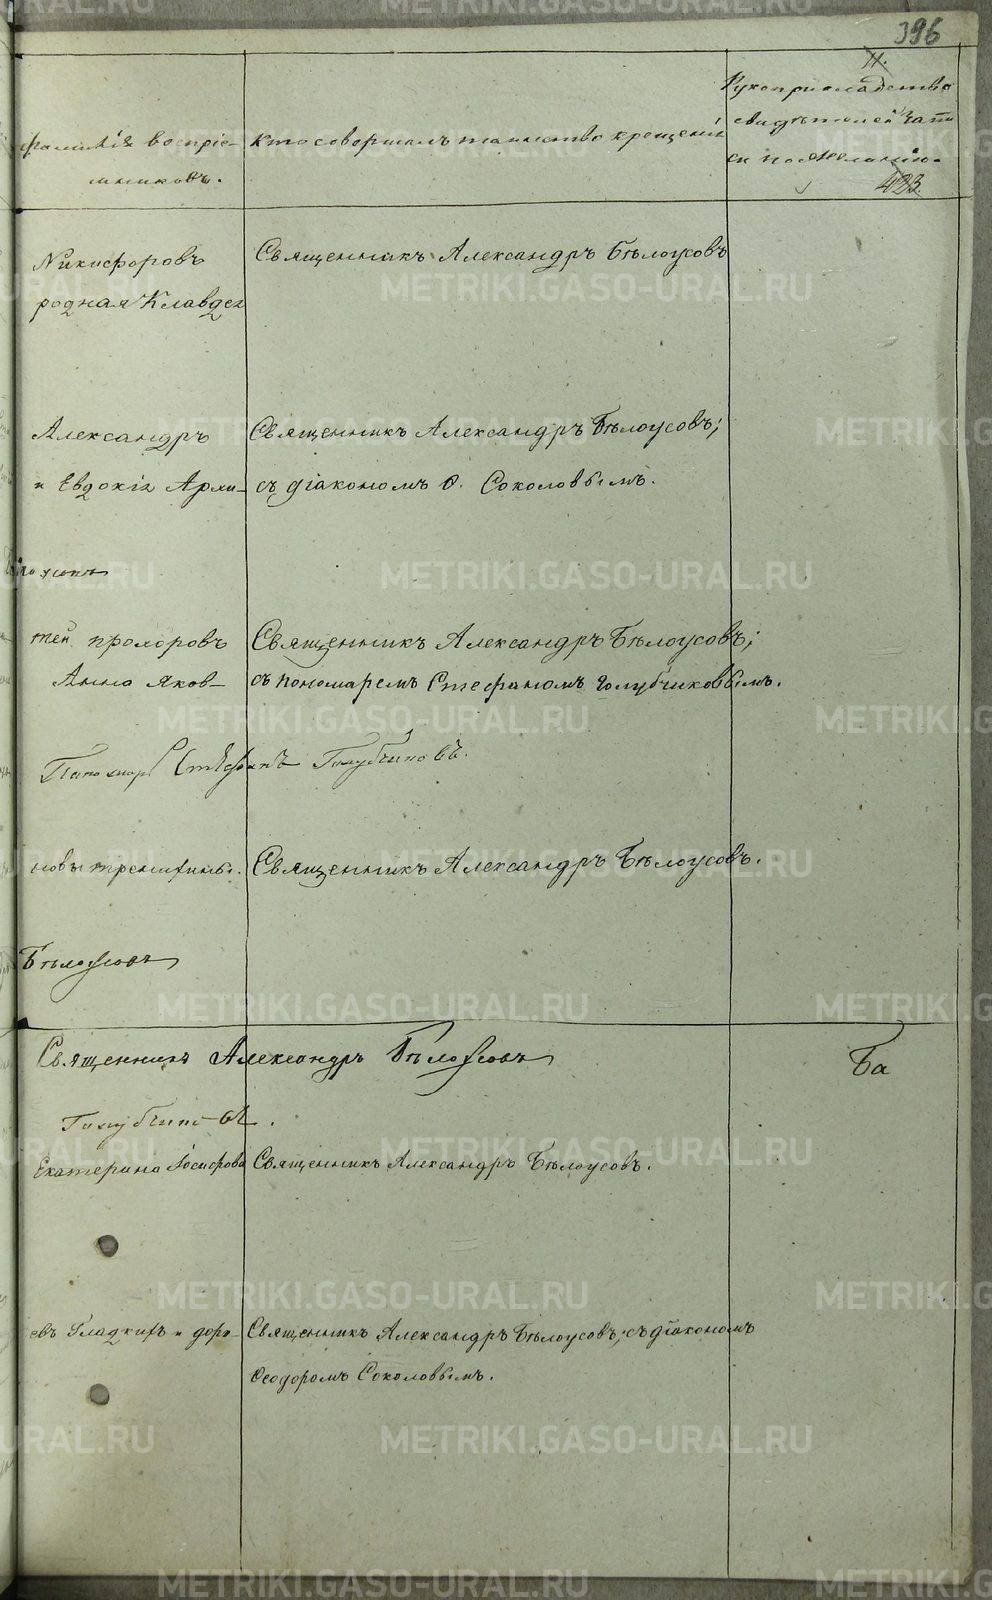 396
11.
фамилія воспріе-
мниковъ.
Кто совершалъ таинство крещенія
Рукоприкладство
свидѣтелей запи
си по желанію.
423
Никифоровъ
родная Клавдея
Священникъ Александръ Бѣлоусовъ
Александръ
и Евдокія Архи-
Священникъ Александръ Бѣлоусовъ;
съ діакономъ Ѳ. Соколовымъ.
Бѣлоусовъ
тей прохоровъ
Анна Яков-
Священникъ Александръ Бѣлоусовъ;
съ пономаремъ Стефаномъ Голубчиковымъ.
Пономарь Стефанъ Голубчиковъ.
Священникъ Александръ Бѣлоусовъ.
Бѣлоусовъ
Священникъ Александръ Бѣлоусовъ
Ба
Голубчиковъ.
Екатерина Іосифова
Священникъ Александръ Бѣлоусовъ.
евъ Гладкихъ и доро-
Священникъ Александръ Бѣлоусовъ; съ діакономъ
Ѳеодоромъ Соколовымъ.
METRIKI.GASO-URAL.RU